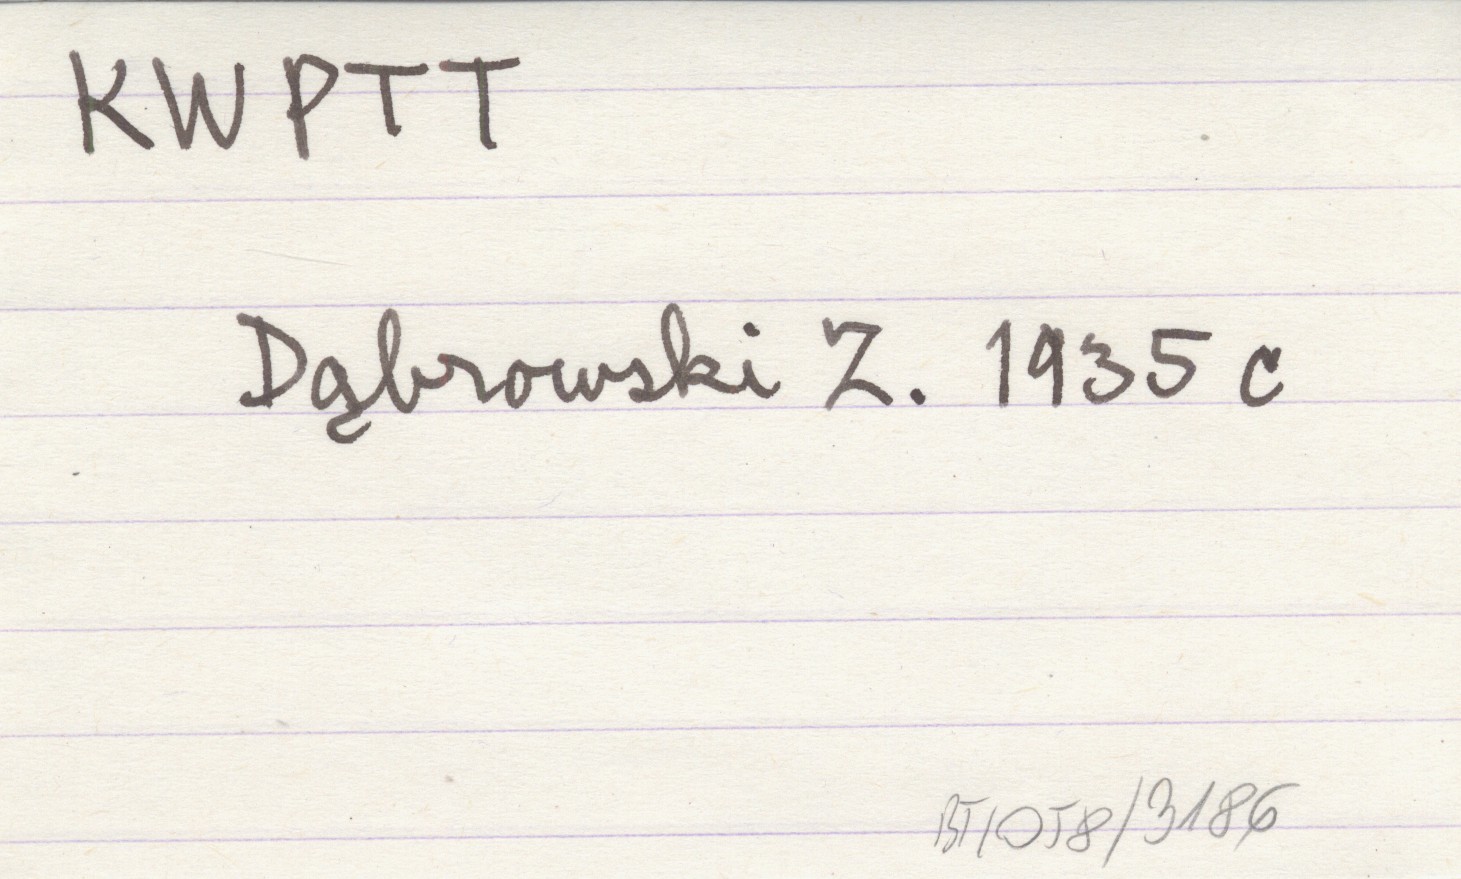 KW PTT
Dąbrowski Z. 1935 c
BT/058/3186